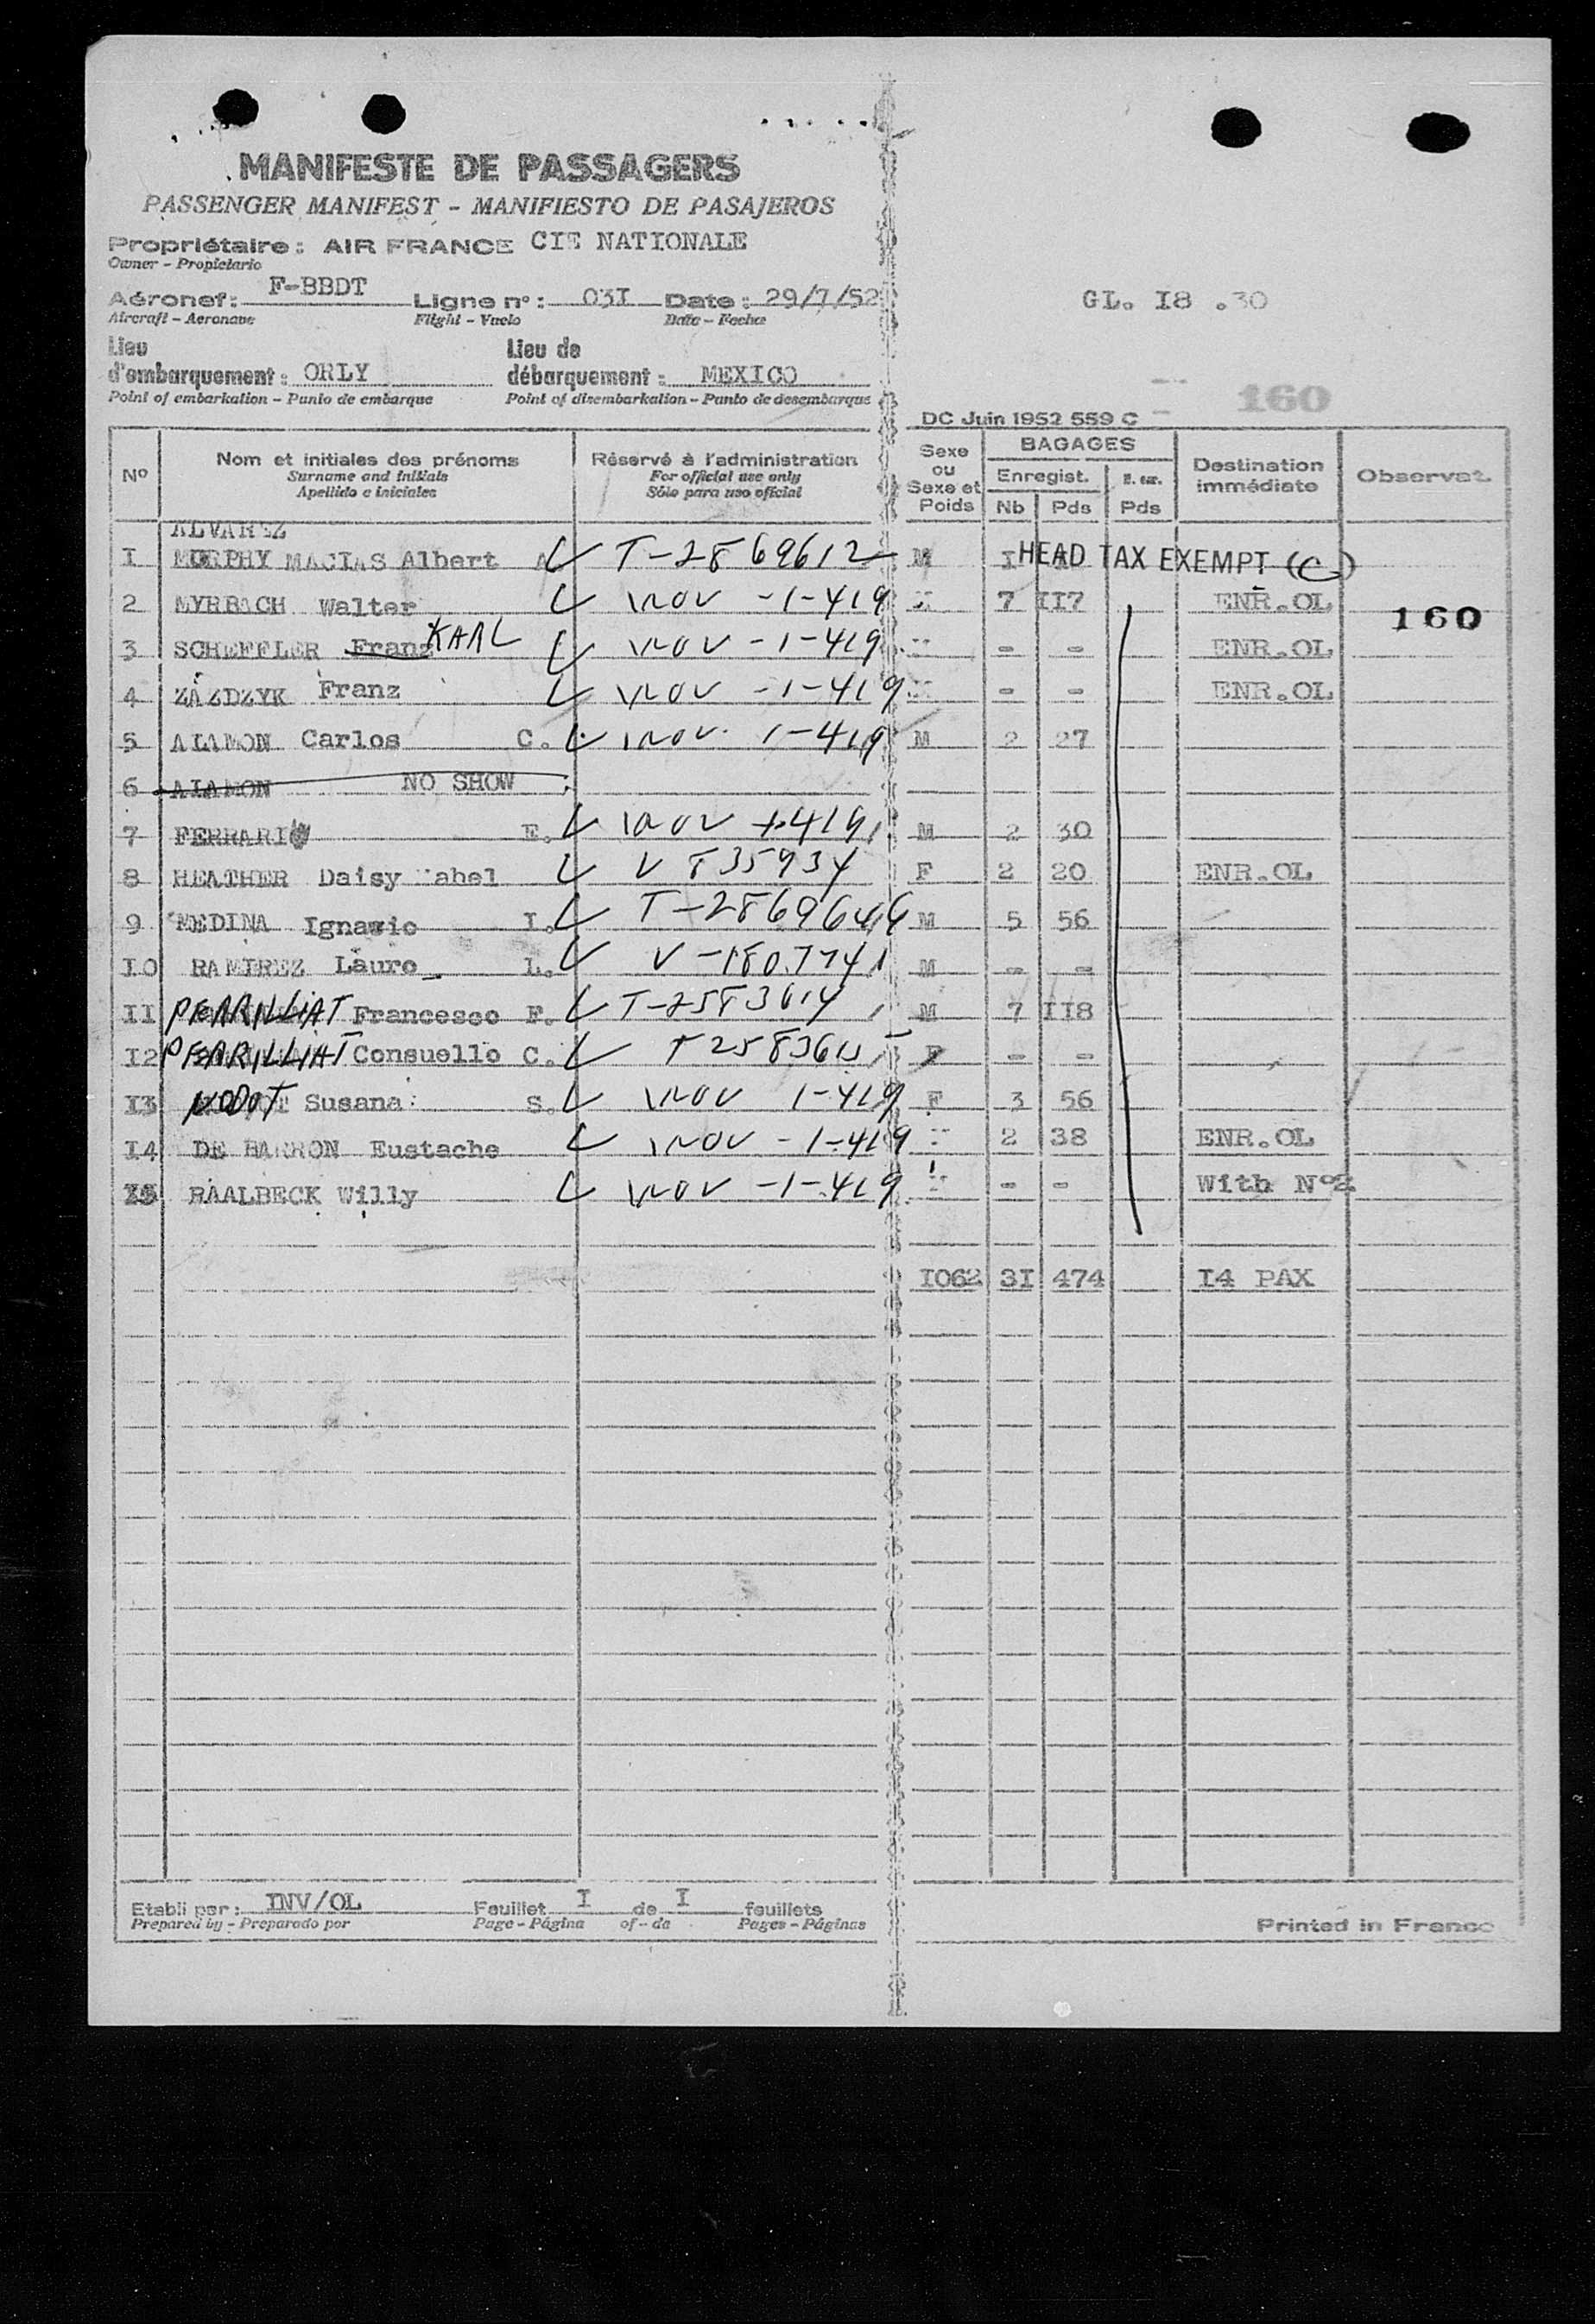 MANIFESTE DE PASSAGERS
PASSENGER MANIFEST - MANIFIESTO DE PASAJEROS
Propriétaire: AIR FRANCE CIE NATIONALE
Owner - Propietario
Aéronef: F-BBDT Ligne n°: 03I Date: 29/7/52
Aircraft - Aeronave Flight - Vuelo Date - Fecha
GL. I8 .30
Lieu d'embarquement: ORLY Lieu de débarquement: MEXICO
Point of embarkation - Punto de embarque Point of disembarkation - Punto de desembarque
160
DC Juin 1952 559 C
N° Nom et initiales des prénoms Réservé à l'administration Sexe ou Sexe et Poids BAGAGES Destination immédiate Observat.
Surname and initials For official use only Enregist.
Apellido e iniciales Sólo para uso oficial Nb Pds Pds
ALVAREZ
I MURPHY MACIAS Albert A. T-2869612 M I HEAD TAX EXEMPT (C)
2 MYRBACH Walter - 1-419 7 II7 ENR.OL
160
3 SCHEFFLER Franz KARL - 1-419 - - ENR.OL
4 ZAZDZYK Franz - 1-419 - - ENR.OL
5 ALAMON Carlos C. 1-419 M 2 27
6 ALAMON NO SHOW
7 FERRARI E. 419 M 2 30
8 HEATHER Daisy Mabel V 835934 F 2 20 ENR.OL
9 MEDINA Ignawio I. T-2869644 M 5 56
IO RAMIREZ Lauro L. V-180774 M - -
II PERRILLIAT Francesco F. T-2583614 M 7 II8
I2 PERRILLIAT Consuello C. T 2583615 F - -
I3 NODOT Susana S. 1-419 F 3 56
I4 DE BARRON Eustache - 1-419 2 38 ENR.OL
I5 BAALBECK Willy - 1-419 - - With N°2
I062 3I 474 I4 PAX
Etabli par: INV/OL Feuillet I de I feuillets
Prepared by - Preparado por Page - Página of - de Pages - Páginas
Printed in France